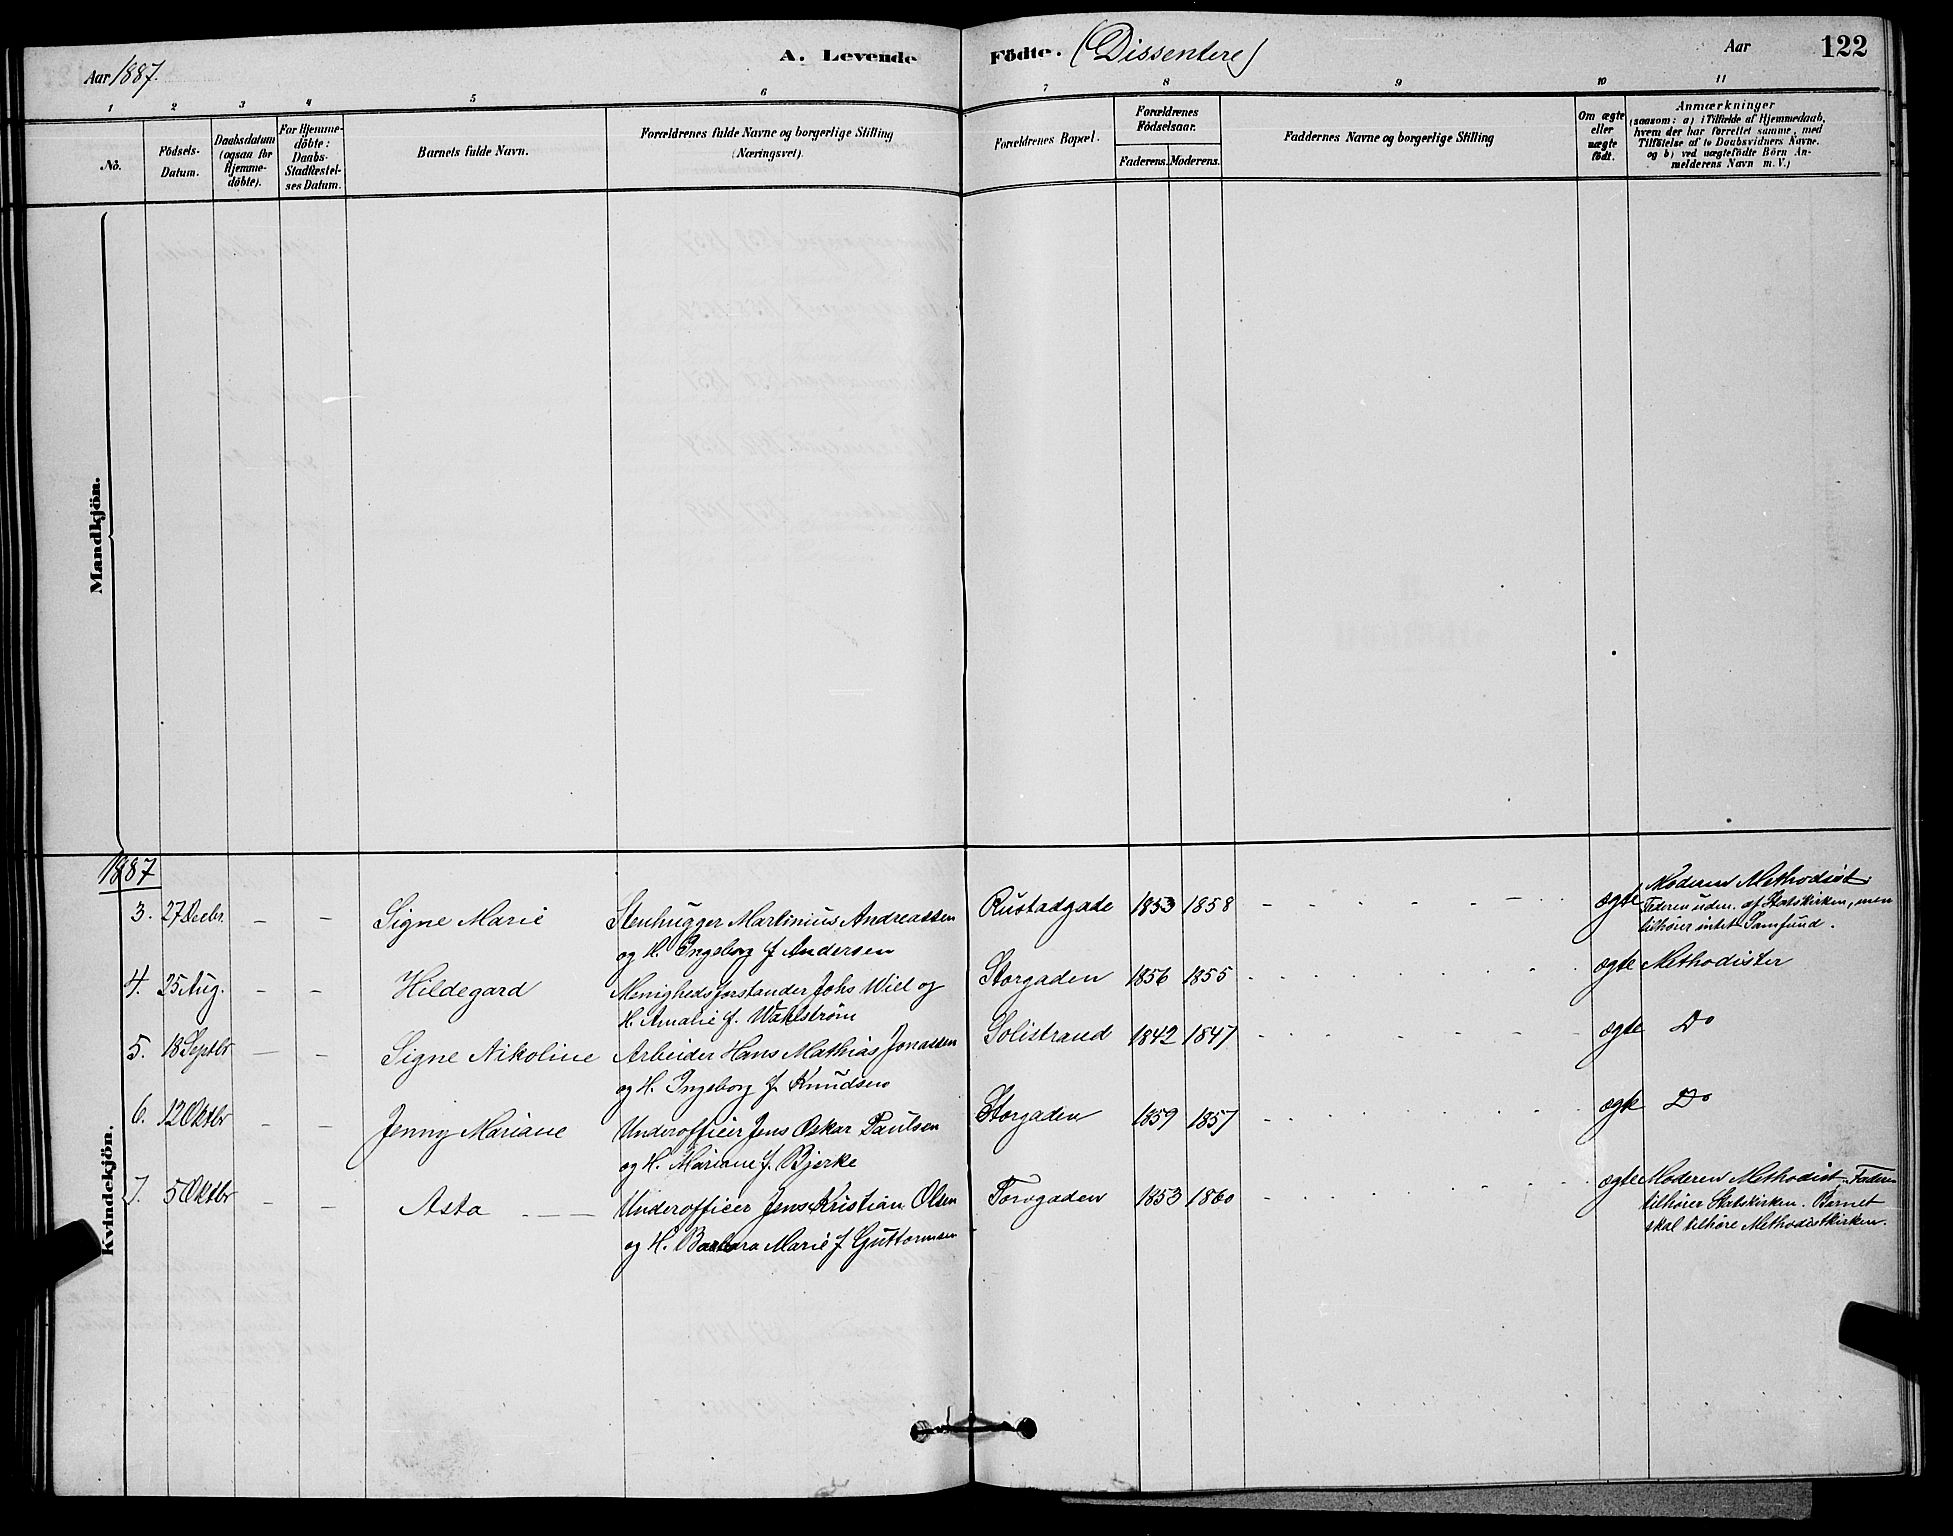 Aar 1887. A. Levende Födte. (Dissentere) Aar 122
1 2 3 4 5 6 7 8 9 10 11
Nô. Födsels-Datum. Daabsdatum (ogsaa for Hjemme-döbte). For Hjemme-döbte: Daabs-Stadfæstel-ses Datum. Barnets fulde Navn. Forældrenes fulde Navne og borgerlige Stilling (Næringsvei). Forældrenes Bopæl. Forældrenes Födselsaar. Faderens. Moderens. Faddernes Navne og borgerlige Stilling Om ægte eller uægte födt. Anmærkninger (saasom: a) i Tilfælde af Hjemmedaab, hvem der har forrettet samme, med Tilföielse af to Daabsvidners Navne. og b) ved uægtefödte Börn An-melderens Navn m. V.)
Mandkjön.
Kvindekjön.
1887
3. 27 Decbr. - - Signe Marie Stenhugger Martinius Andreassen Rustadgade 1853 1858 ægte Moderen Methodist.
og H. Ingeborg f Andersen Faderen udm. af Statskirken, men
tilhører intet Samfund.
4. 25 Aug. - - Hildegard Menighedsforstander Johs Wiel og Storgaden 1856 1855 ægte Methodister
H. Amalie f. Wahlstrøm
5. 18 Septbr - - Signe Nikoline Arbeider Hans Mathias Jonassen Solistrand 1842 1847 ægte Do
og H. Ingeborg f. Knudsen
6. 12 Oktbr - - Jenny Mariane Underofficier Jens Oskar Paulsen Storgaden 1859 1857 ægte Do
og H. Mariane f. Bjerke
7. 5 Oktbr - - Asta Underofficier Jens Kristian Olsen Torvgaden 1853 1860 ægte Moderen Methodist, Faderen
og H. Barbara Marie f Guttormsen tilhører Statskirken. Barnet
skal tilhøre Methodistkirken.